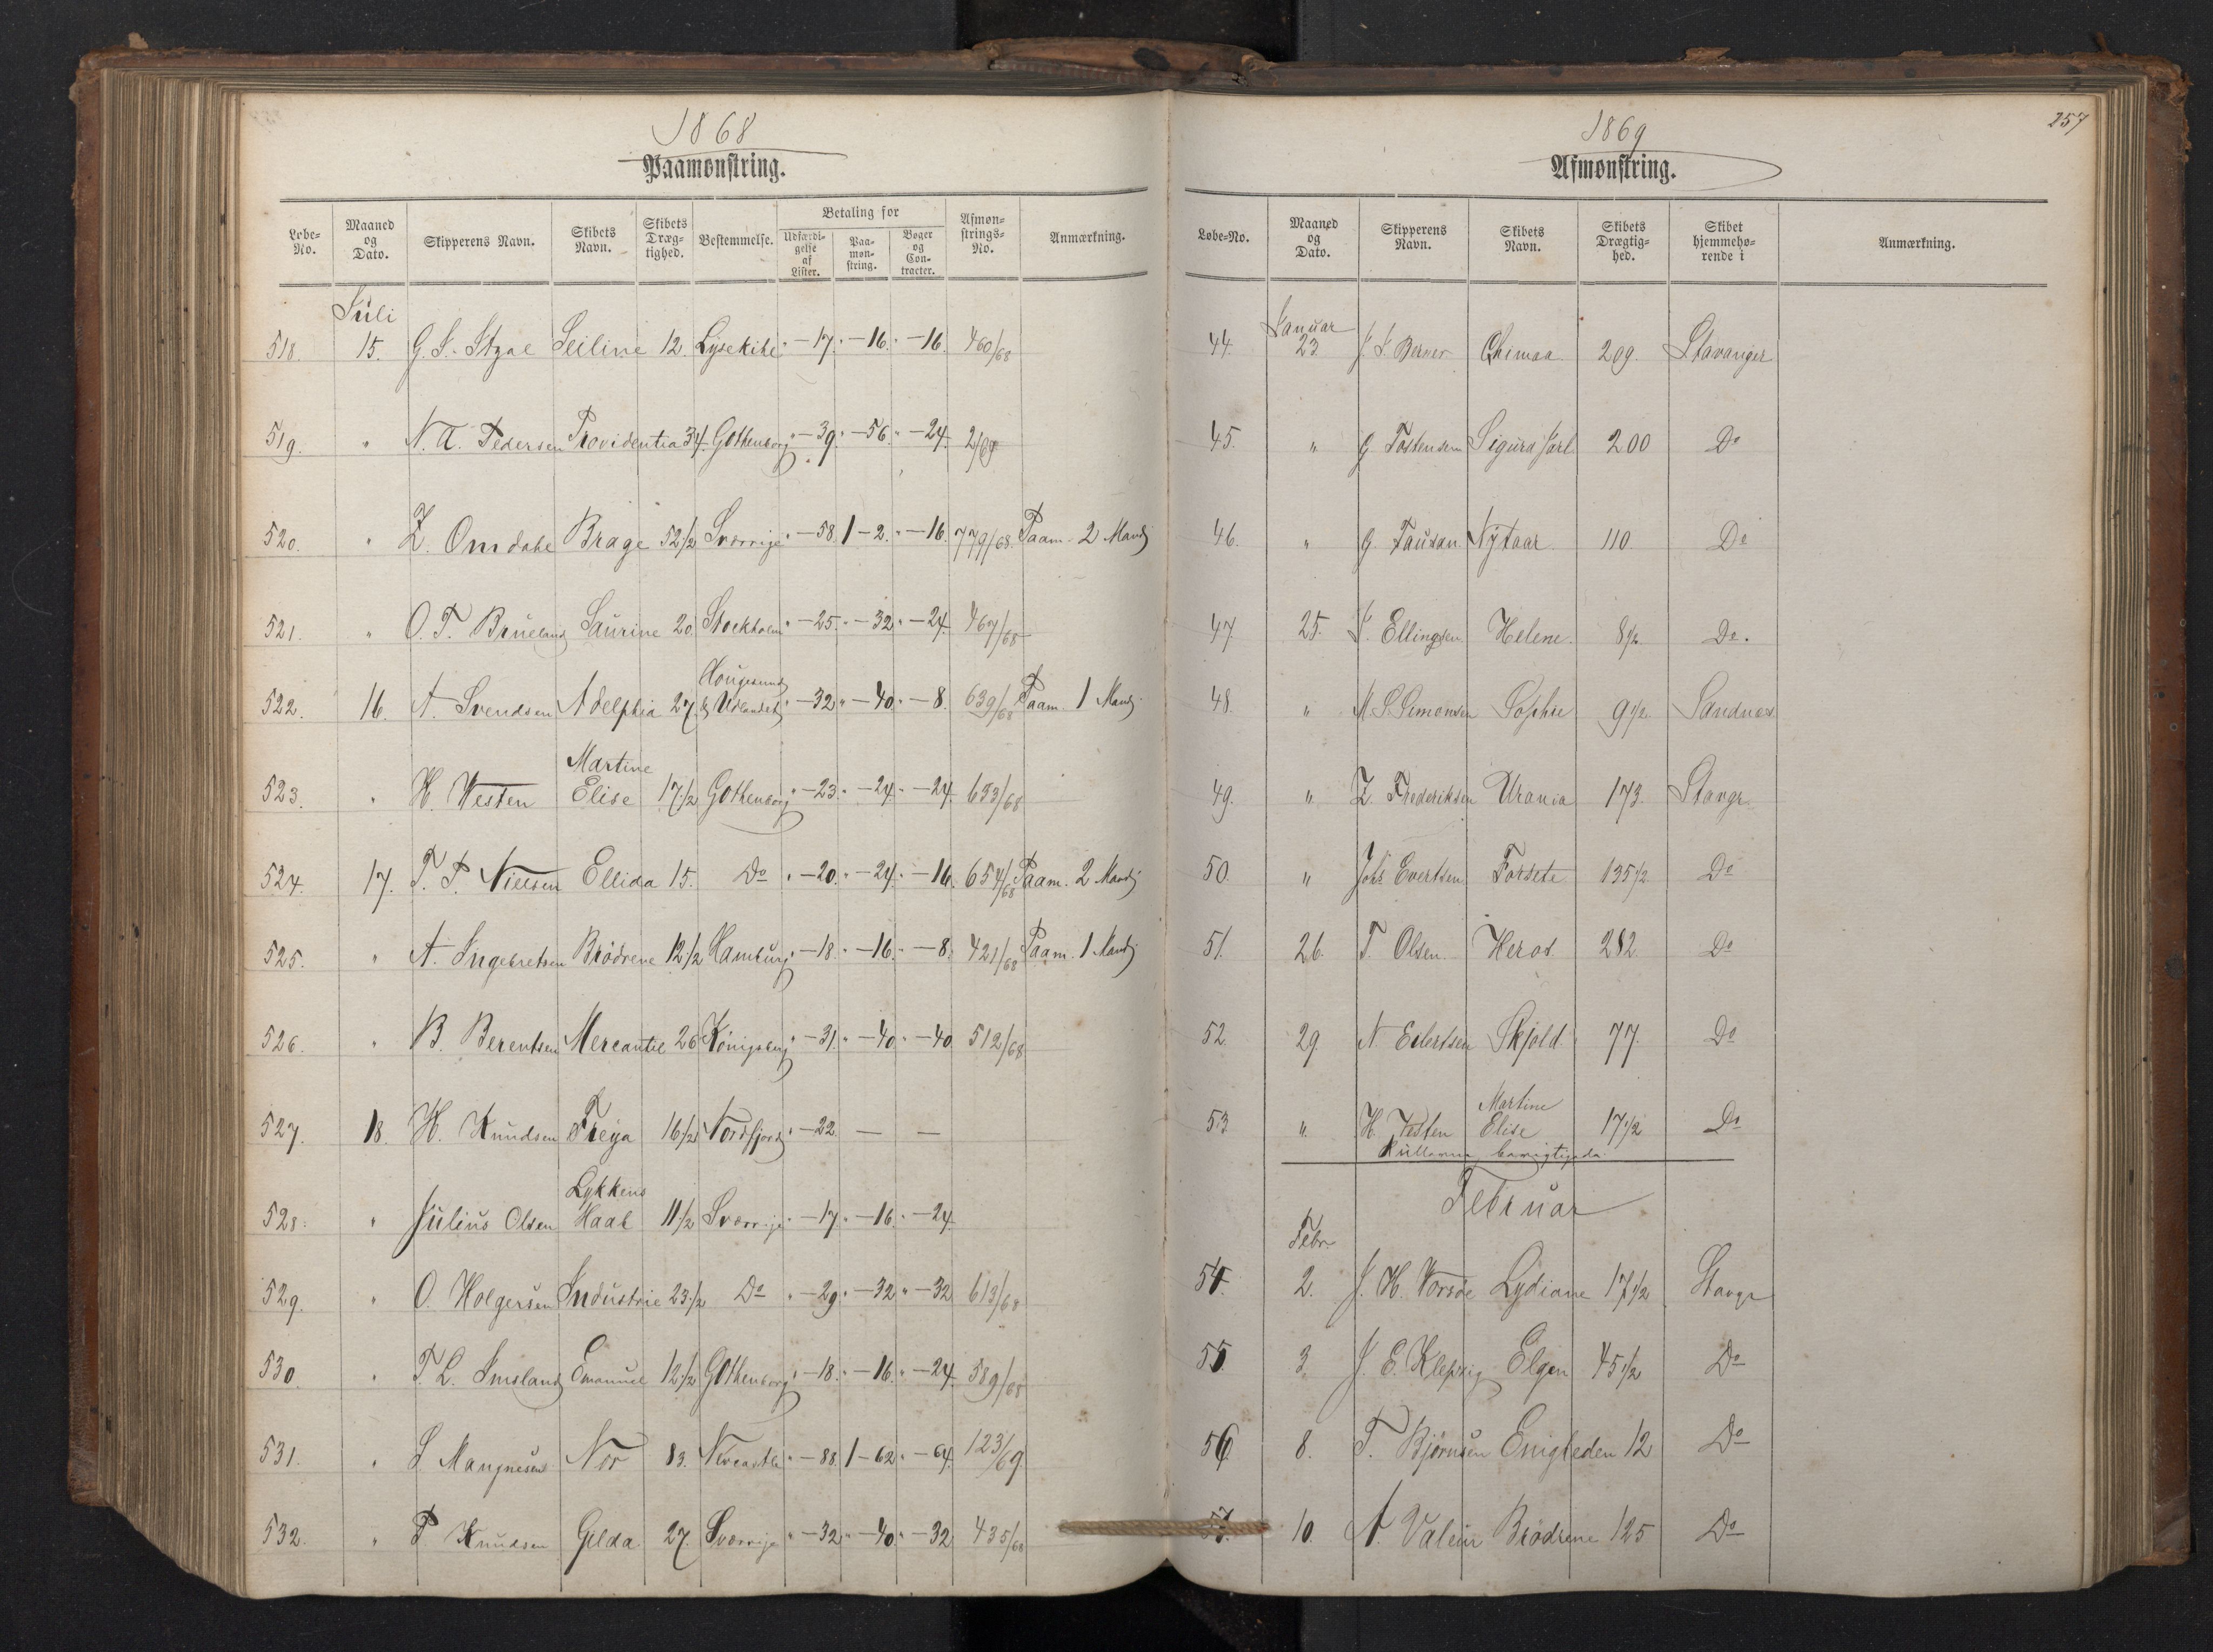 1868
Paamønstring.
Løbe-No. Maaned og Dato. Skipperens Navn. Skibets Navn. Skibets Dræg-tighed. Bestemmelse. Betaling for Udfærdi-gelse af Lister. Paa-møn-string. Bøger og Con-tracter. Afmøn-strings-No. Anmærkning.
Juli
518. 15. Seiline 12. Lysekihl " - 17. " - 16. " - 16. 460/68
519. " N. A. Pedersen Providentia 34. Gothenborg " - 39. " - 56. " - 24. 2/69
520. " Z. Omdahl Brage 52 1/2 Sverrige " - 58. 1 - 2. " - 16. 779/68. Paam. 2 Mand
521. " O. T. Brueland Laurine 20 Stockholm " - 25. " - 32. " - 24. 467/68
522. 16. A. Svendsen Adelphia 27. Hougesund & Udlandet " - 32 " - 40. " - 8. 639/68 Paam. 1 Mand
523. " H. Westen Martine Elise 17 1/2 Gothenborg " - 23. " - 24. " - 24. 633/68
524. 17. T. T. Nielsen Ellida 15. Do " - 20. " - 24. " - 16. 654/68 Paam. 2 Mand
525. " A. Ingebretsen Brødrene 12 1/2 Hamburg " - 18. " - 16. " - 8. 421/68 Paam. 1 Mand
526. " B. Berentsen Mercantil 26 Königsberg " - 31. " - 40 " - 40 512/68
527. 18. H. Knudsen Freya 16 1/2 Nordfjord " - 22 — —
528. " Julius Olsen Lykkens Haab 11 1/2 Sverrige " - 17. " - 16. " - 24.
529. " O. Holgersen Industrie 23 1/2 Do " - 29. " - 32 " - 32 613/68
530. " T. L. Imsland Emanuel 12 1/2 Gothenborg " - 18. " - 16. " - 24. 589/68
531. " L. Mangnesen Nor 83. Newcastle " - 88. 1 - 62 " - 64. 123/69
532. " P Knudsen Gilda 27. Sverrige " - 32 " - 40. " - 32 435/68
257
1869
Afmønstring.
Løbe-No. Maaned og Dato. Skipperens Navn. Skibets Navn. Skibets Drægtig-hed. Skibet hjemmehø-rende i Anmærkning.
Januar
44. 23. J. L. Berner 209. Stavanger
45. " G. Tostensen Sigurd Jarl 200 Do
46. " G. Nytaar 110. Do
47. 25. Ellingsen Helene 8 1/2 Do.
48. " M. S. Simonsen Sophie 9 1/2 Sandnes
49. " Z. Frederiksen Urania 173. Stavgr
50. " Johs Evertsen Forsete 135 1/2 Do
51. 26. T. Olsen Heros. 282. Do
52. 29. N Eilertsen Skjold 77. Do
53. " H. Vesten Martine Elise 17 1/2 Do
Februar
Febr
54. 2. J. H. Vorsøe Lydiane 17 1/2 Stavgr
55 3. J. E. Kleppig Elgen 45 1/2 Do
56. 8. T. Bjørnsen Enigheden 12 Do
57. 10. A. Valeur Brødrene 125 Do